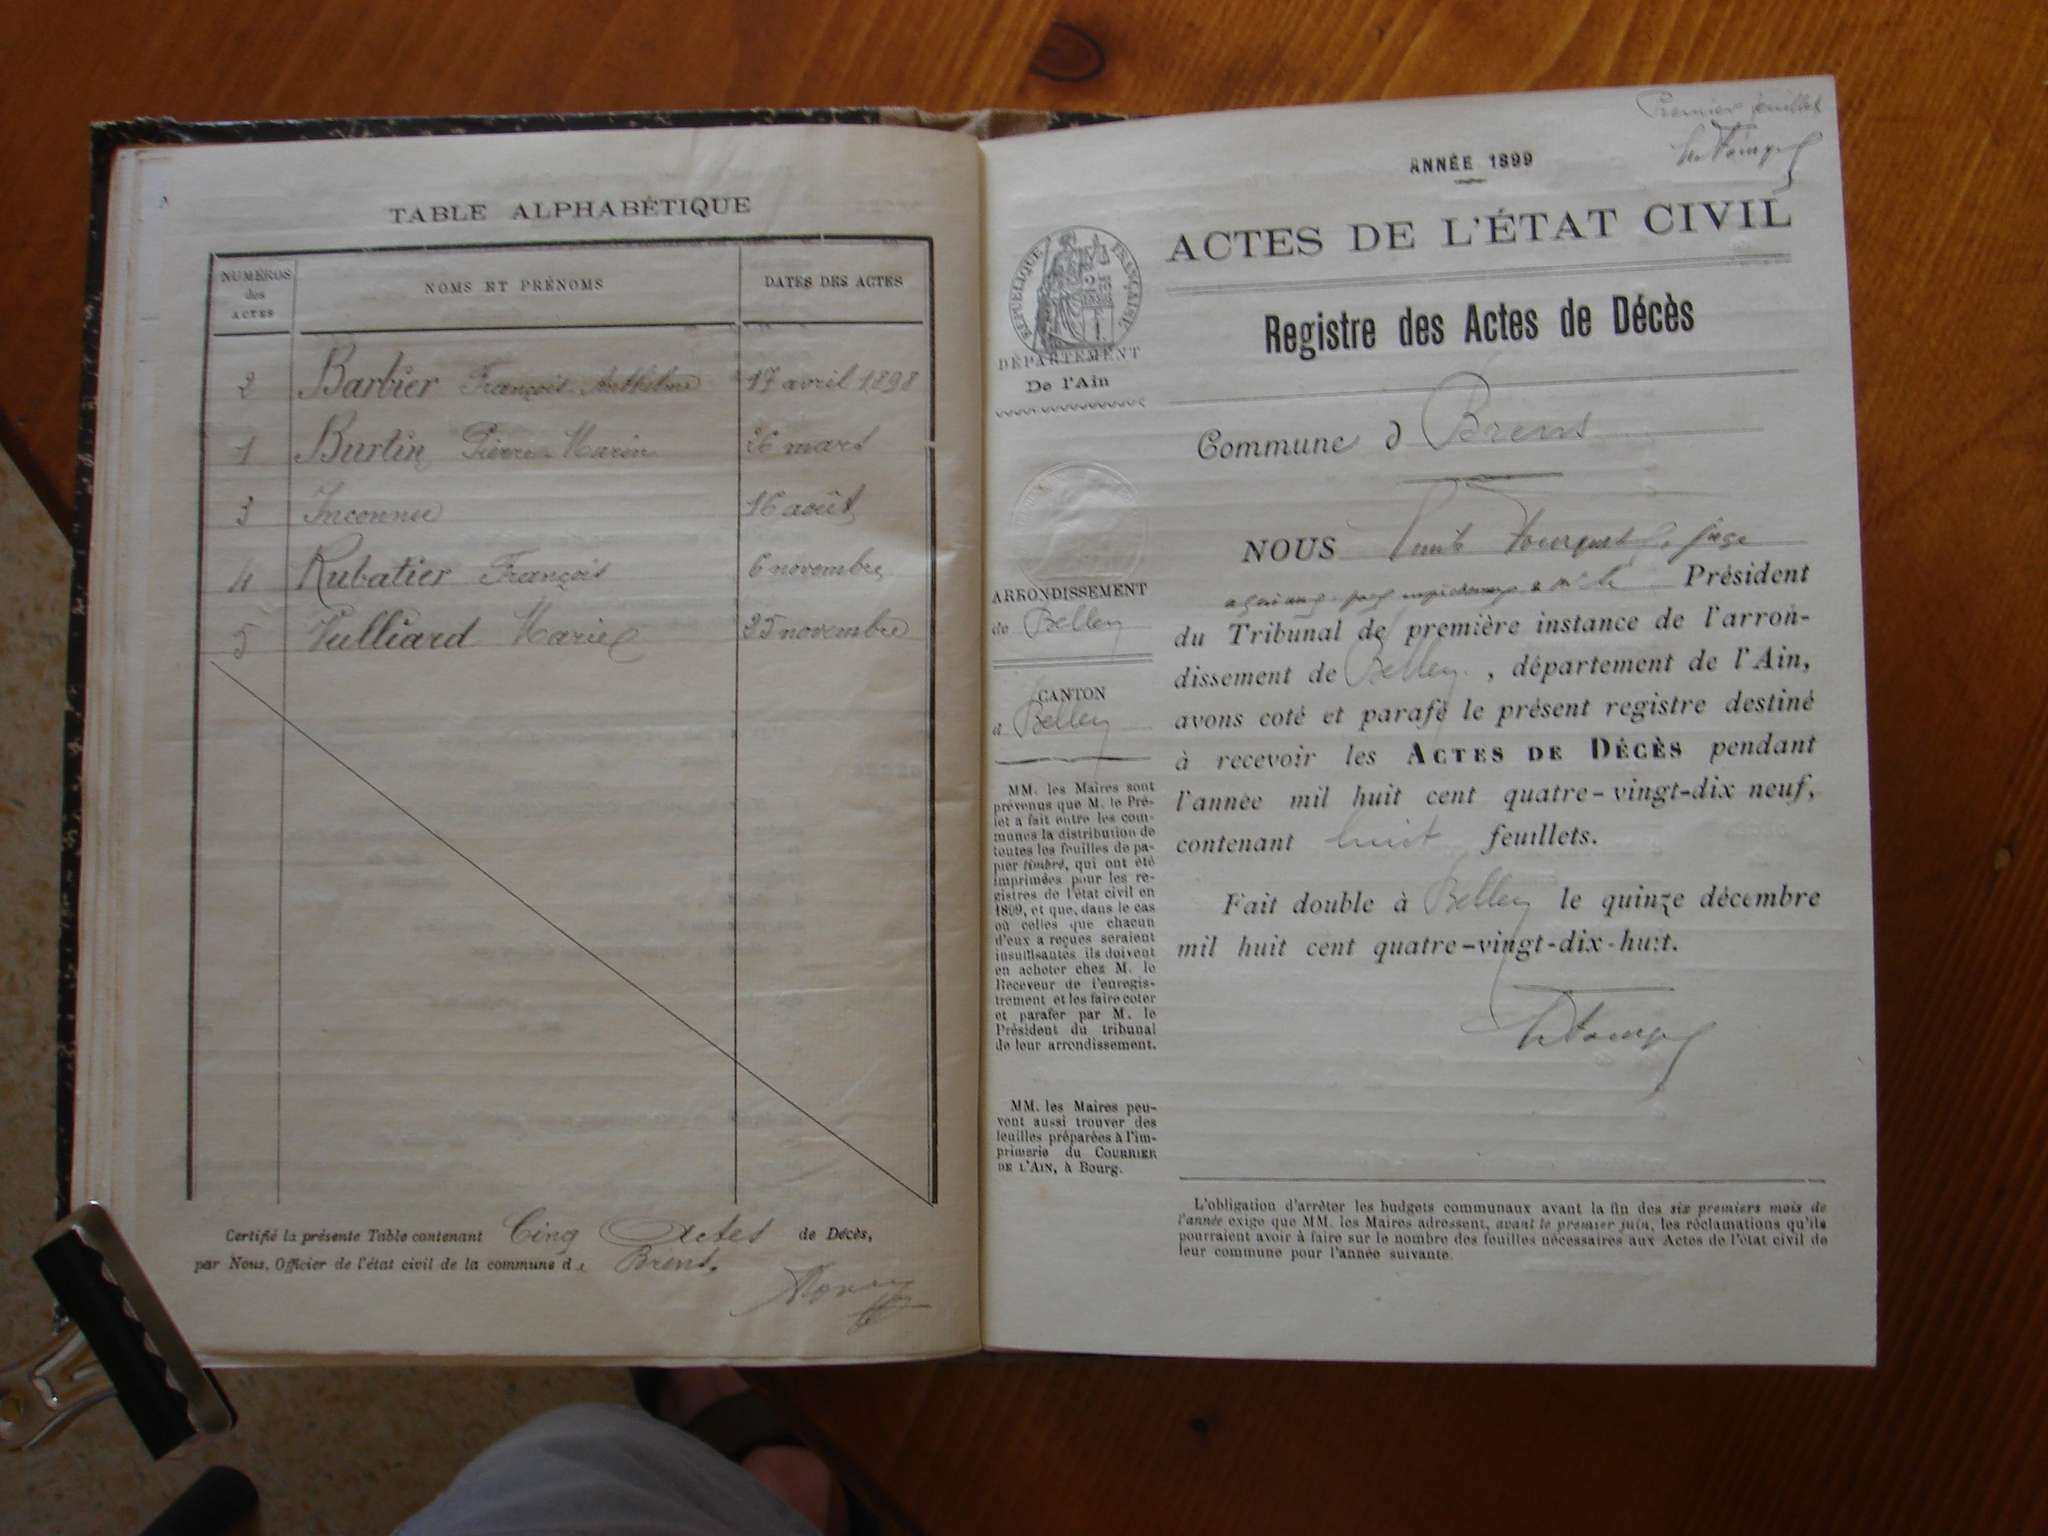 TABLE ALPHABÉTIQUE
NUMÉROS
des
ACTES
NOMS ET PRÉNOMS
DATES DES ACTES
2 Barbier François Anthelme 17 avril 1898
1 Burtin Pierre Marin 26 mars
3 Inconnu 16 août
4 Rubatier François 6 novembre
5 Vulliard Marie 25 novembre
Certifié la présente Table contenant Cinq Actes de Décès,
par Nous, Officier de l'état civil de la commune de Brens.
Premier feuillet
ANNÉE 1899
ACTES DE L'ÉTAT CIVIL
Registre des Actes de Décès
RÉPUBLIQUE FRANÇAISE
DÉPARTEMENT
De l'Ain
ARRONDISSEMENT
de Belley
CANTON
d Belley
MM. les Maires sont
prévenus que M. le Pré-
fet a fait entre les com-
munes la distribution de
toutes les feuilles de pa-
pier timbré, qui ont été
imprimées pour les re-
gistres de l'état civil en
1899, et que, dans le cas
où celles que chacun
d'eux a reçues seraient
insuffisantes ils doivent
en acheter chez M. le
Receveur de l'enregis-
trement et les faire coter
et parafer par M. le
Président du tribunal
de leur arrondissement.
MM. les Maires peu-
vent aussi trouver des
feuilles préparées à l'im-
primerie du COURRIER
DE L'AIN, à Bourg.
Commune d Brens
NOUS juge
Président
du Tribunal de première instance de l'arron-
dissement de Belley, département de l'Ain,
avons coté et parafé le présent registre destiné
à recevoir les ACTES DE DÉCÈS pendant
l'année mil huit cent quatre-vingt-dix neuf,
contenant huit feuillets.
Fait double à Belley le quinze décembre
mil huit cent quatre-vingt-dix-huit.
L'obligation d'arrêter les budgets communaux avant la fin des six premiers mois de
l'année exige que MM. les Maires adressent, avant le premier juin, les réclamations qu'ils
pourraient avoir à faire sur le nombre des feuilles nécessaires aux Actes de l'état civil de
leur commune pour l'année suivante.